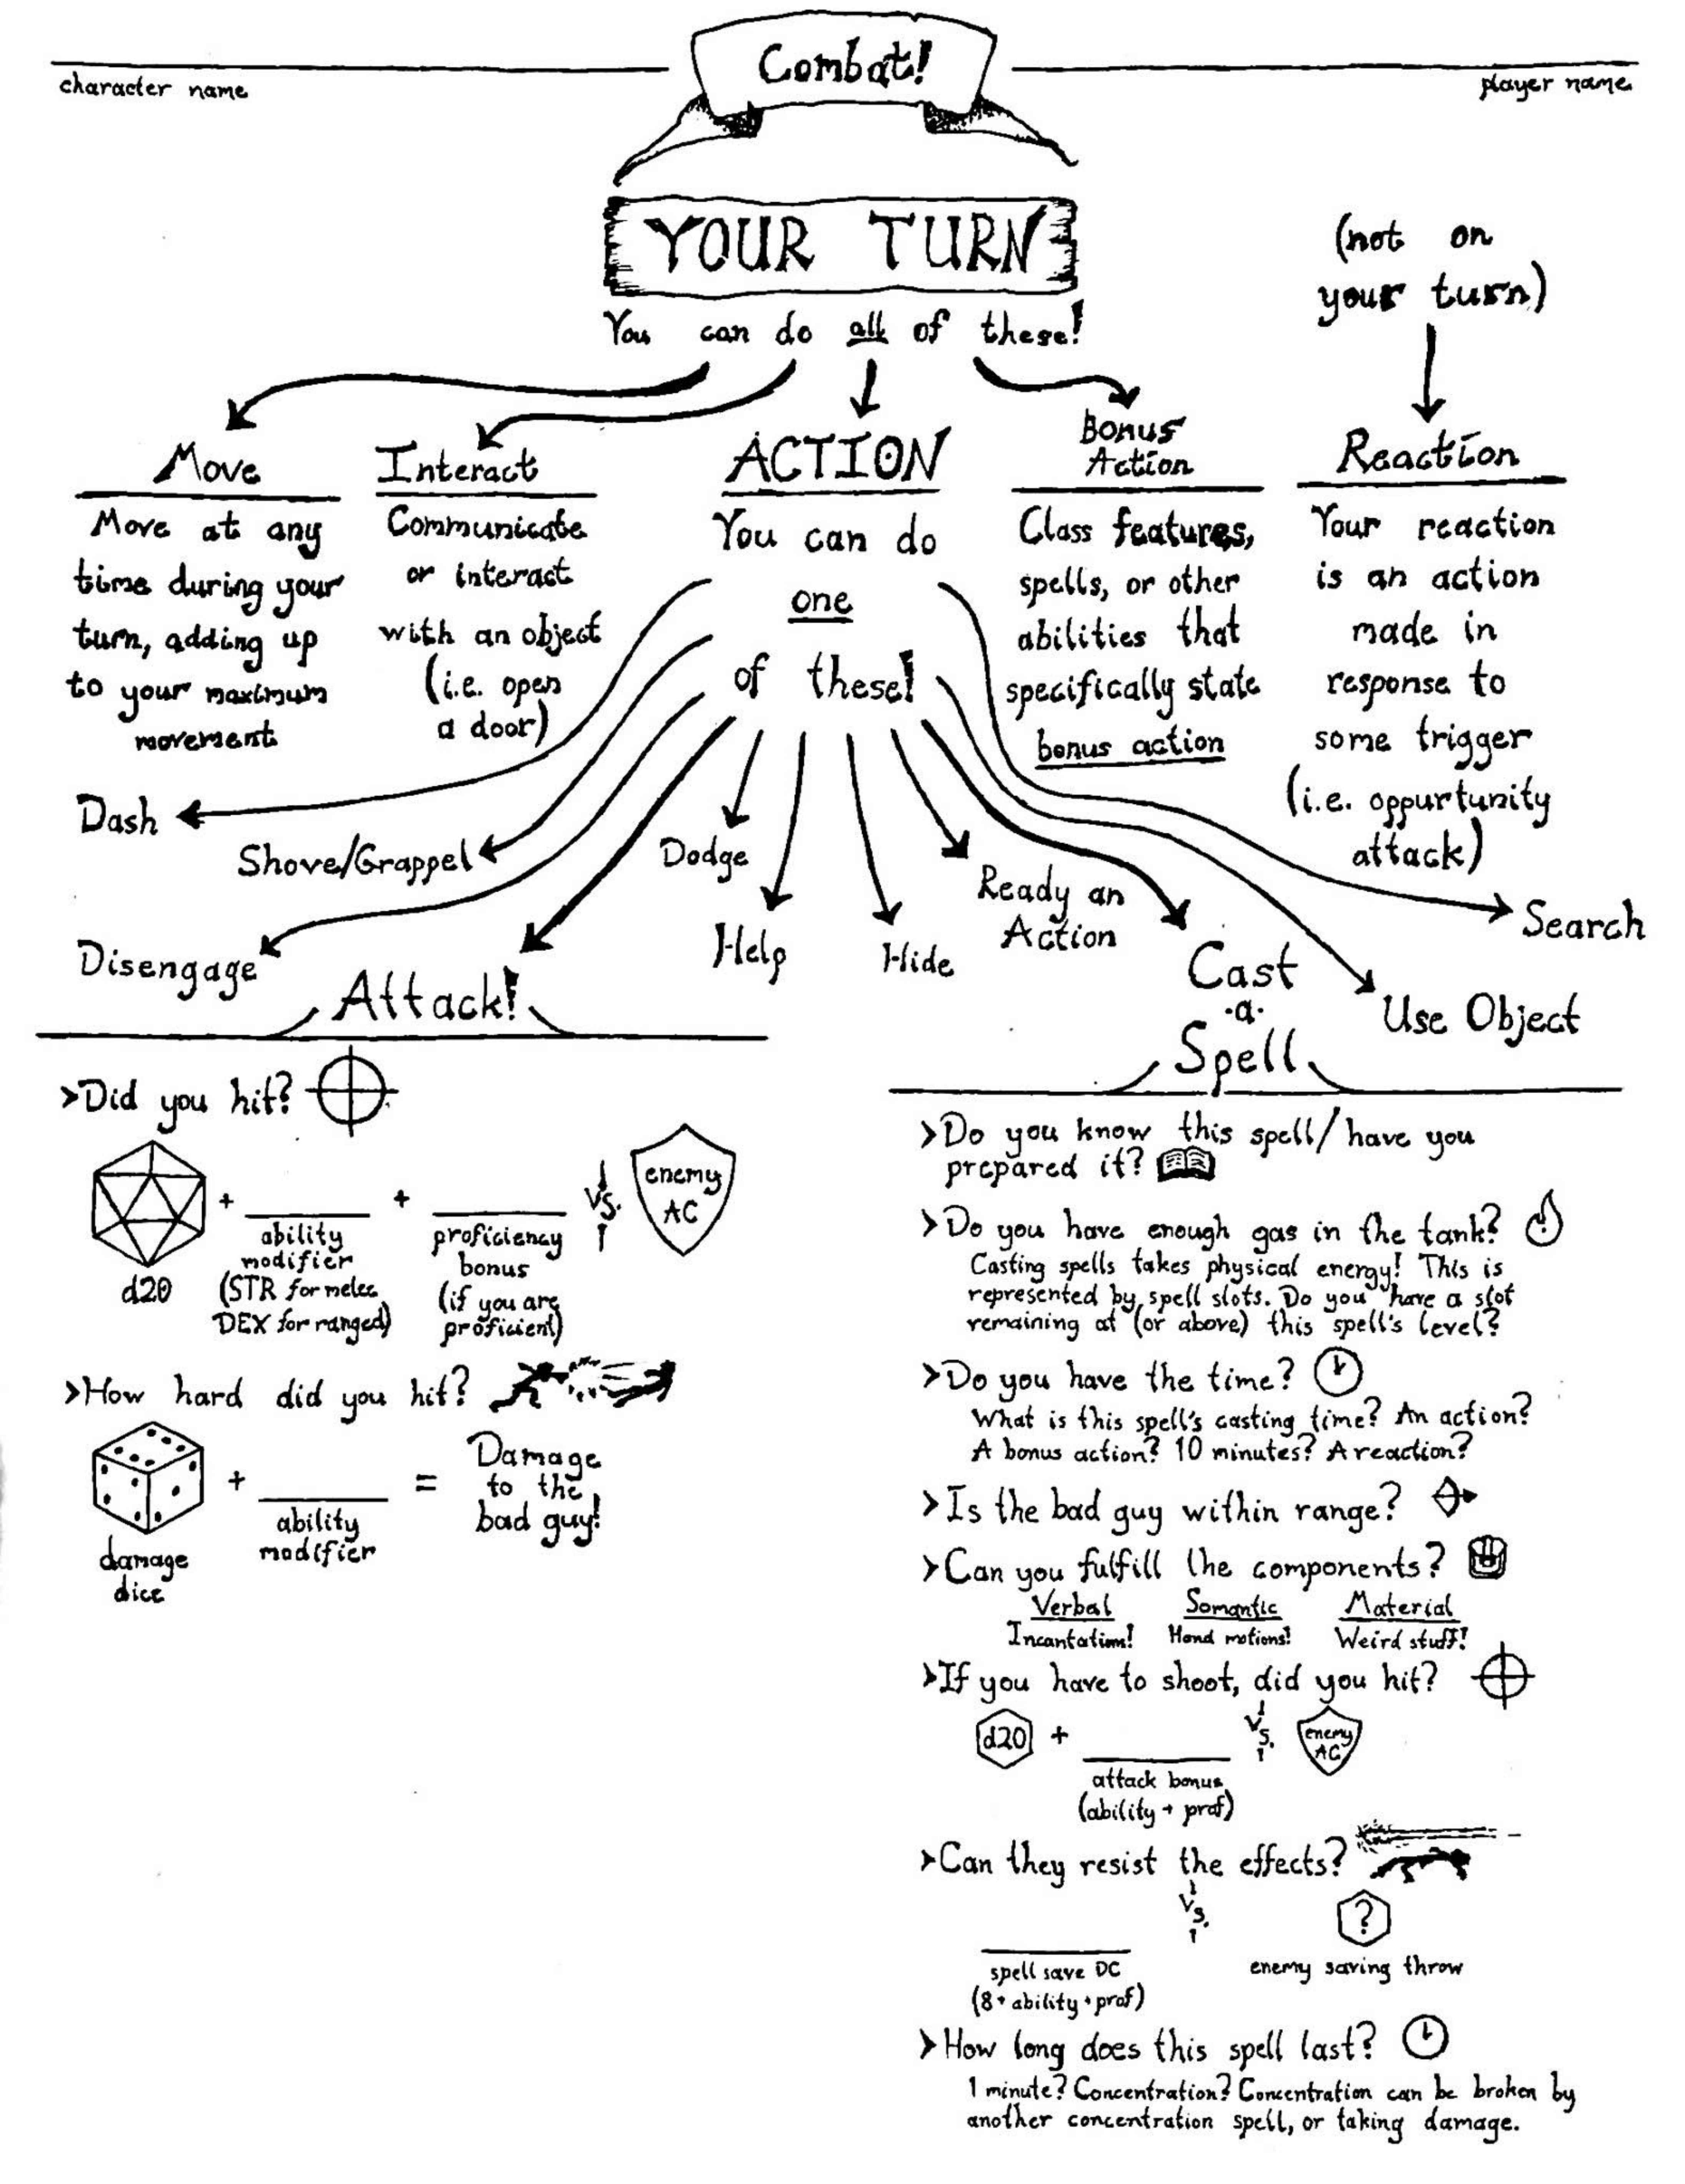 Combat!
character name
player name
YOUR TURN
You can do all of these!
(not on
your turn)
Move
Move at any
time during your
turn, adding up
to your maximum
movement
Interact
Communicate
or interact
with an object
(i.e. open
a door)
ACTION
You can do
one
of these!
Bonus
Action
Class features,
spells, or other
abilities that
specifically state
bonus action
Reaction
Your reaction
is an action
made in
response to
some trigger
(i.e. oppurtunity
attack)
Dash
Shove/Grappel
Disengage
Attack!
Dodge
Help
Hide
Ready an
Action
Cast
-a-
Spell
Use Object
Search
>Did you hit?
d20
+
ability
modifier
(STR for melee
DEX for ranged)
+
proficiency
bonus
(if you are
proficient)
vs.
enemy
AC
>How hard did you hit?
damage
dice
+
ability
modifier
=
Damage
to the
bad guy!
>Do you know this spell/have you
prepared it?
>Do you have enough gas in the tank?
Casting spells takes physical energy! This is
represented by spell slots. Do you have a slot
remaining at (or above) this spell's level?
>Do you have the time?
What is this spell's casting time? An action?
A bonus action? 10 minutes? A reaction?
>Is the bad guy within range?
>Can you fulfill the components?
Verbal
Incantation!
Somantic
Hand motions!
Material
Weird stuff!
>If you have to shoot, did you hit?
d20 +
attack bonus
(ability + prof)
vs.
enemy
AC
>Can they resist the effects?
vs.
?
spell save DC
(8+ability+prof)
enemy saving throw
>How long does this spell last?
1 minute? Concentration? Concentration can be broken by
another concentration spell, or taking damage.